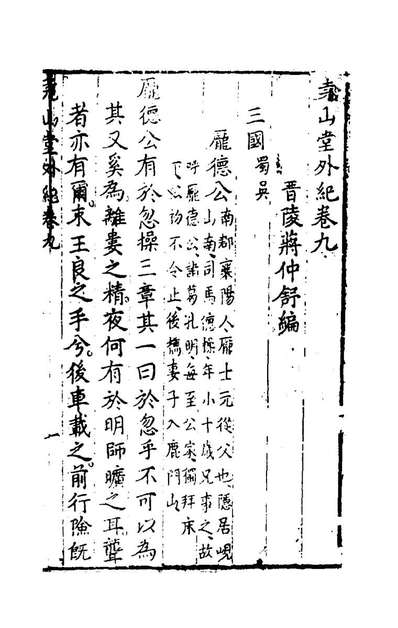 堯山堂外紀卷九
晋陵蔣仲舒編
三國 蜀吳
龐德公
南郡襄陽人龐士元從父也隱居峴
山南司馬德操年小十歲兄事之故
呼龐德公諸葛孔明每至公家獨拜床
下公初不令止後攜妻子入鹿門山
龐德公有於忽操三章其一曰於忽乎不可以為
其又奚為離婁之精夜何有於明師曠之耳聾
者亦有爾末王良之手兮後車載之前行險既
堯山堂外紀卷九
一